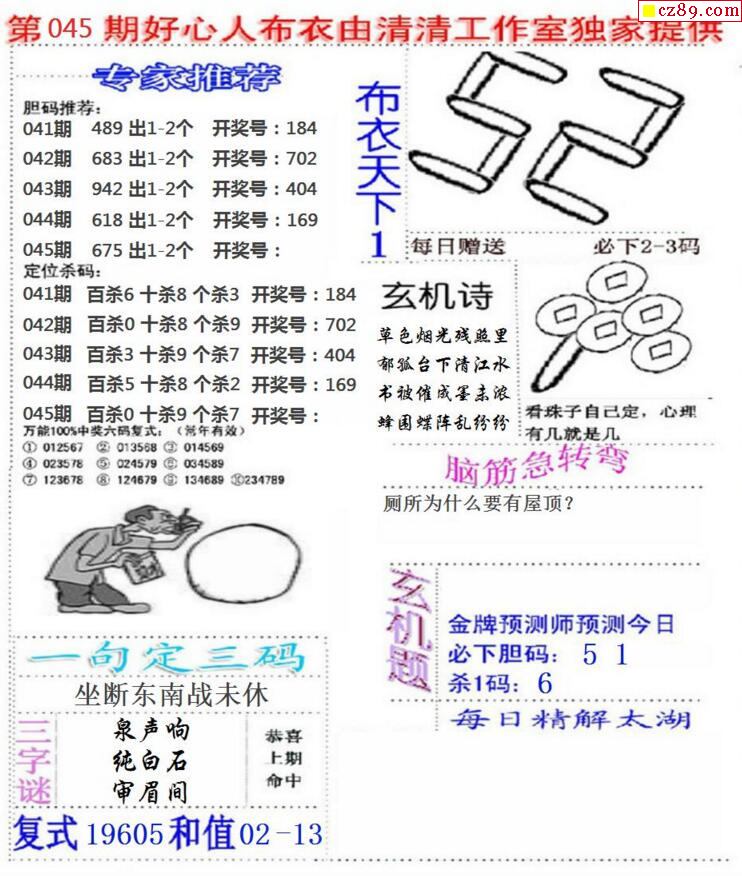 cz89.com
第045期好心人布衣由清清工作室独家提供
专家推荐
胆码推荐:
041期 489 出1-2个 开奖号:184
042期 683 出1-2个 开奖号:702
043期 942 出1-2个 开奖号:404
044期 618 出1-2个 开奖号:169
045期 675 出1-2个 开奖号:
定位杀码:
041期 百杀6 十杀8 个杀3 开奖号:184
042期 百杀0 十杀8 个杀9 开奖号:702
043期 百杀3 十杀9 个杀7 开奖号:404
044期 百杀5 十杀8 个杀2 开奖号:169
045期 百杀0 十杀9 个杀7 开奖号:
万能100%中奖六码复式:(常年有效)
① 012567 ② 013568 ③ 014569
④ 023578 ⑤ 024579 ⑥ 034589
⑦ 123678 ⑧ 124679 ⑨ 134689 ⑩234789
一句定三码
坐断东南战未休
三字谜
泉声响
纯白石
审眉间
恭喜
上期
命中
复式 19605 和值 02-13
布衣天下1
52
每日赠送 必下2-3码
玄机诗
草色烟光残照里
郁孤台下清江水
书被催成墨未浓
蜂围蝶阵乱纷纷
看珠子自己定，心理
有几就是几
脑筋急转弯
厕所为什么要有屋顶?
玄机题
金牌预测师预测今日
必下胆码: 5 1
杀1码: 6
每日精解太湖